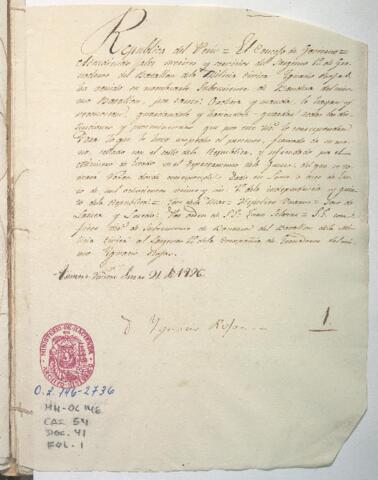 Republica del Perú = El Consejo de Gobierno =
Atendiendo a los meritos y servicios del Sargento 1º de Gra-
naderos del Batallon de la Milicia Civica Ygnacio Rosas
ha venido en nombrarle Subteniente de Bandera del mis-
mo Batallon, por tanto: Ordena y manda le hayan y
reconozcan, guardandole y haciendole guardar todas las dis-
tinciones y preeminencias que por este titº le corresponden
Para lo que le hizo expedir el presente, firmado de su ma-
no, sellado con el sello de la Republica, y refrendado por el
Ministro de Estado en el Departamento de la Guerra, del que se to-
mará razon donde corresponda. Dado en Lima a
de mil ochocientos veinte y seis
de la Republica =
Larrea y Loredo = Por orden de S.E. Juan Salazar = S.E. con-
fiere titº de Subteniente de Bandera del Batallon de la Mi-
licia Civica al Sargento 1º de la Compañia de Granaderos del mis-
mo Ygnacio Rosas
Enero 21 de 1826
Dn Ygnacio Rosas
1.
MINISTERIO DE HACIENDA
O.L. 146-2736
MH-OL 146
CAJ. 54
DOC. 41
FOL. 1